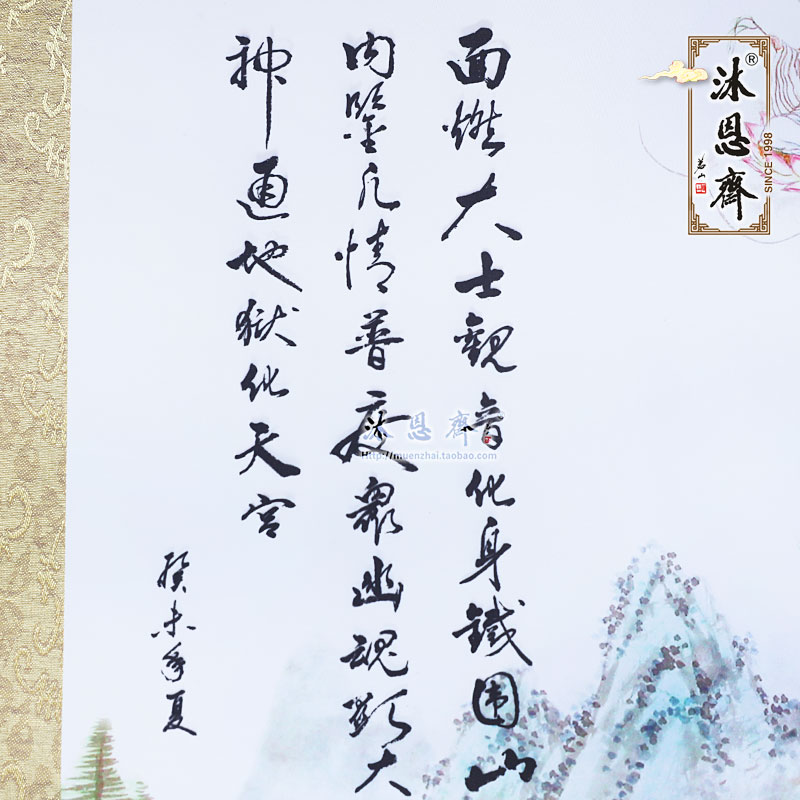 面燃大士觀音化身鐵围山
内鑒凡情普度眾幽魂顯大
神通地獄化天宮
癸未年夏
沐恩齋®
SINCE 1998
沐恩齋
Http://muenzhai.taobao.com